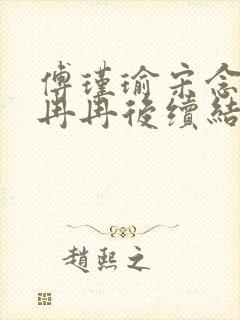 傅瑾瑜宋念
冉冉後續結
趙熙之